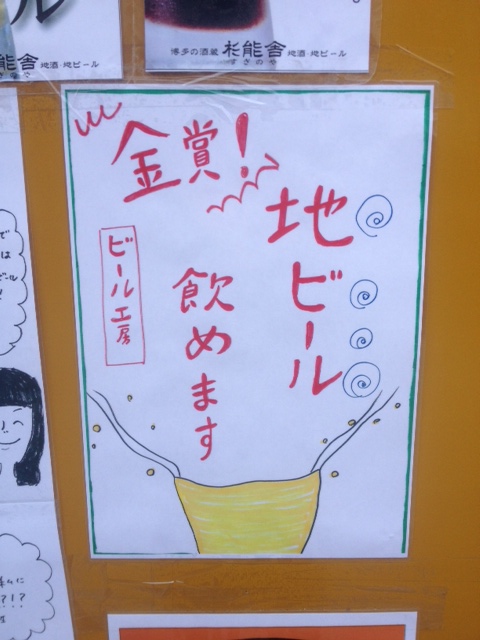 能舎 地酒・地ビール
博多の酒蔵 杉能舎 地酒・地ビール
すぎのや
金賞!
地ビール
飲めます
ビール工房
で
は
ビール
?!?